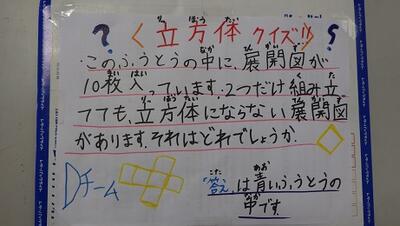 ?〈立方体クイズ!!〉?
このふうとうの中に、展開図が
10枚入っています。2つだけ組み立
てても、立方体にならない展開図
があります。それはどれでしょうか。
Dチーム
「答え」は青いふうとうの
中です。